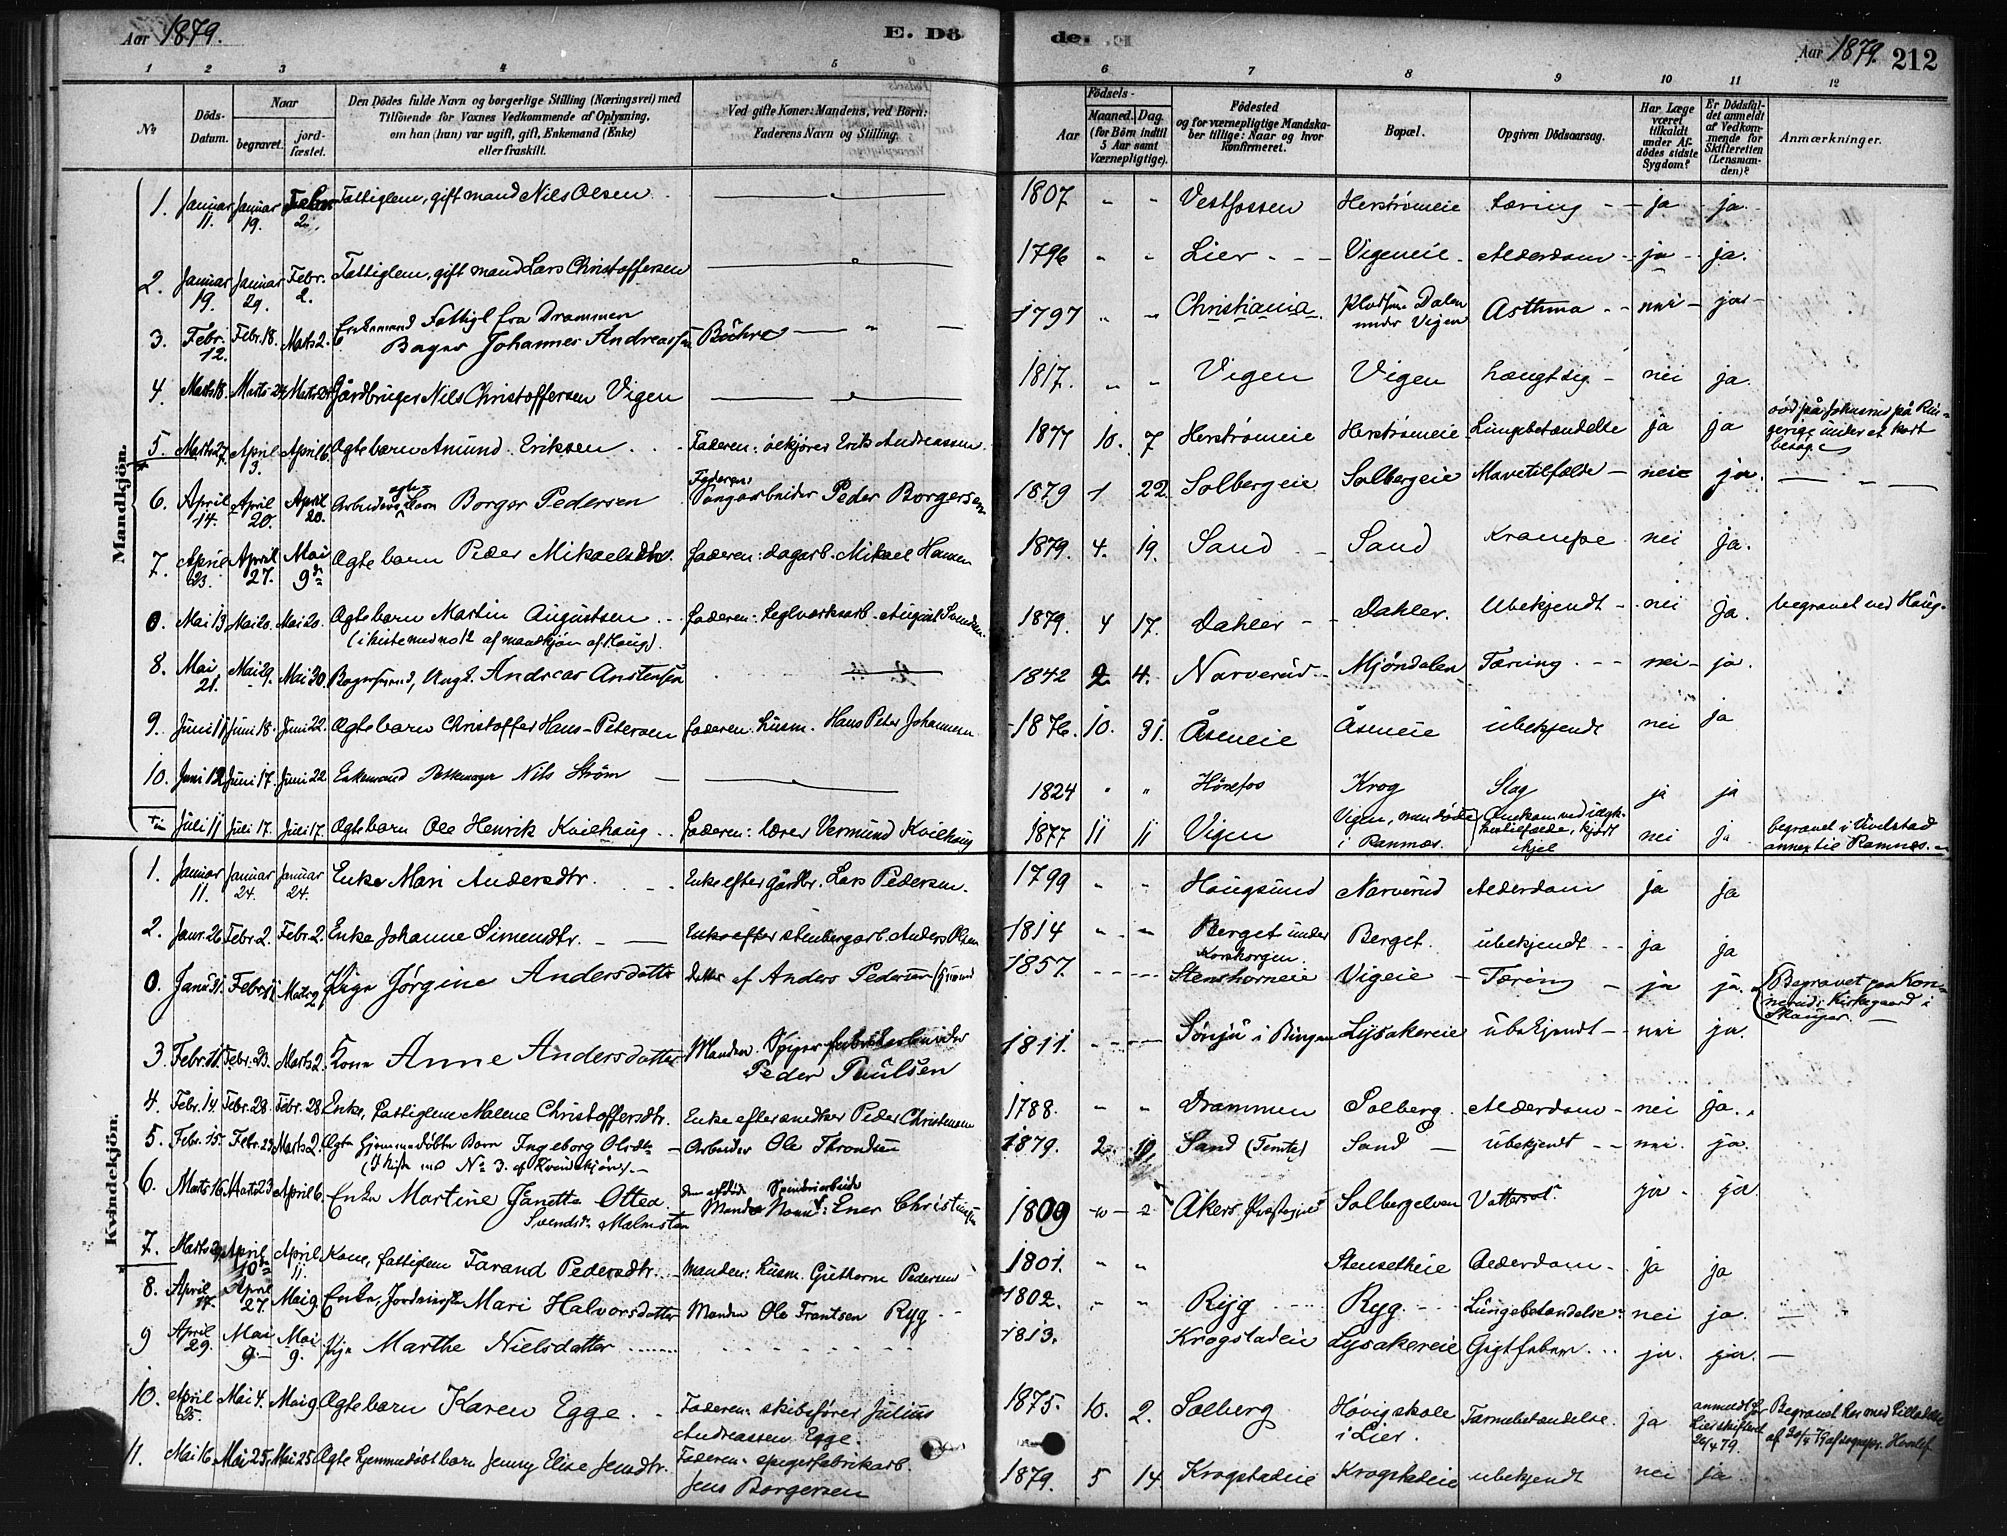 Aar 1879.
E. Dö
de: E
Aar 1879.
212
1 2 3 4 5 6 7 8 9 10 11 12
№
Döds-Datum.
Naar
begravet.
jord-fæstet.
Den Dödes fulde Navn og borgerlige Stilling (Næringsvei) med
Tilföiende for Voxnes Vedkommende af Oplysning,
om han (hun) var ugift, gift, Enkemand (Enke)
eller fraskilt.
Ved gifte Koner: Mandens, ved Börn:
Faderens Navn og Stilling.
Födsels-
Aar
Maaned. Dag.
(for Börn indtil
5 Aar samt
Værnepligtige).
Födested
og for værnepligtige Mandska-
ber tillige: Naar og hvor
konfirmeret.
Bopæl.
Opgiven Dödsaarsag.
Har Læge
været
tilkaldt
under Af-
dödes sidste
Sygdom?
Er Dödsfal-
det anmeldt
af Vedkom-
mende for
Skifteretten
(Lensman-
den)?
Anmærkninger.
Mandkjön.
1. Januar 11. Januar 19. Febr. 2. Fattiglem, gift mand Nils Olsen 1807 Vestfossen Herstrømeie tæring ja ja
2. Januar 19. Januar 29. Febr. 2. Fattiglem, gift mand Lars Christoffersen 1796 Lier Vigeneie Alderdom ja ja.
3. Febr. 12. Febr. 18. Marts 2. Enkemand Fattigl fra Drammen
Bager Johannes Andreassen Bøhre 1797 Christiania Dalen
under Vigen Asthma nei ja
4. Marts 18. Marts 24 Gårdbruger Nils Christoffersen Vigen 1817. Vigen Vigen Langt sig nei ja.
5. Marts 27. April 3. April 6. Ægtebarn Amund Eriksen Faderen: ølkjører Erik Andreassen 1877 10. 7 Herstrømeie Herstrømeie Lungebetændelse ja ja død på Johnsrud på Rin-
gerige under et kort
besøg.
6. April 14. April 20. April 20. Arbeiders ægte Barn Borger Pedersen Faderen:
Sangarbeider Peder Borgersen 1879 1 22 Solbergeie Solbergeie Mavetilfælde nei ja.
7. April 23. April 27. Mai 9de Ægtebarn Peder Mikaelsdtr. faderen: dagarb. Mikael Hansen 1879. 4. 19. Sand Sand Krampe nei ja.
0. Mai 13 Mai 20. Mai 20. Ægtebarn Martin Augustsen faderen: teglværksarb. August Svendsen
(i kiste med no 12 af mandkjøn af Haug). 1879. 4 17. Dahler Dahler. Ubekjendt nei ja. begravet ved Haug.
8. Mai 21. Mai 29. Mai 30. Bagersvend, Ung. Andreas Anstensen 1842 2. 4. Narverud Mjøndalen Tæring nei ja.
9. Juni 11 Juni 18. Juni 22. Ægtebarn Christoffer Hans-Petersen faderen: husm. Hans Peter Johannesen 1876. 10. 31. Åseneie Åseneie ubekjendt nei ja
10. Juni 12 Juni 17. Juni 22 Enkemand Pottemager Nils Strøm 1824 Hønefos Krog Slag ja ja
Juli 11 Juli 17. Juli 17. Ægtebarn Ole Henrik Kvilhaug faderen: lærer Vermund Kvilhaug 1877 11 11 Vigen Vigen, men døde
i Ramnæs. Omkom ved ulyk-
kestilfælde, kjørt
ihjel nei ja begravet i Vivelstad
annex til Ramnes.
Kvindekjön.
1. Januar 11. Januar 24. Januar 24. Enke Mari Andersdtr. Enke efter gårdbr. Lars Pedersen. 1799 Hougsund Narverud Alderdom ja ja
2. Janr. 26 Febr. 2. Febr. 2. Enke Johanne Simensdtr. Enke efter stenbergarb. Anders Olsen 1814 Berget under
Korshorgen. Berget. ubekjendt ja ja
0. Janu 31. Marts 2 Pige Jørgine Andersdatter datter af Anders Pedersen 1857. Stenshorneie Vigeie Tæring ja ja. Begravet paa Kon-
neruds Kirkegaard i
Skauger.
3. Febr. 16. Febr. 23. Marts 2. Kone Anne Andersdatter Manden: Spigerfabrikarbeider
Peder Paulsen 1811. Sønju i Bingen Lysakereie ubekjendt nei ja.
4. Febr. 14 Febr. 28 Febr. 28 Enke, fattiglem Malene Christoffersdtr. Enke efter snedker Peder Christensen 1788. Drammen Solberg. Alderdom nei ja.
5. Febr. 15. Febr. 23 Marts 2. Ægte Hjemmedøbte Barn Ingeborg Olsdtr
(I kiste med No 3. af Kvindekjøn). Arbeider Ole Throndsen 1879. 2. 10. Sand (Temte) Sand ubekjendt nei. ja.
6. Marts 16. Marts 23 April 6. Enke Martine Janetta Ottea
Svendsdr. Malmsten den afdøde Spinderiarbeider
Mands Navn: Ener Christensen 1809 Akers Præstegjeld Solbergelven Vattersot. ja. ja.
7. Marts 29. April 10de April 11. Kone, fattiglem Tarand Pedersdtr. Manden: husm. Guthorm Pedersen 1801. Stensetheie Alderdom ja ja
8. April 17. April 27. Mai 9. Enke, Jordmoder Mari Halvorsdatter Manden Ole Frantsen Ryg 1802. Ryg Ryg Lungebetændelse nei ja.
9 April 29. Mai 9. Mai 9. Pige Marthe Nielsdatter 1813. Krogstadeie Lysakereie Gigtfeber ja. ja.
10. April 25. Mai 4. Mai 9. Ægtebarn Karen Egge. Faderen: skibsfører Julius
Andreassen Egge. 1875. 10. 2. Solberg Høvig skole
i Lier. Tarmebetændelse. ja anmeldt for
Lier skifteret
26/4 79. Begravet her med tilladelse
af 26/4 79 af sognepr. Hvoslef
11. Mai 16. Mai 25. Mai 25 Ægte hjemmedøbt barn Jenny Elise Jensdtr. Faderen: spigerfabrikarb.
Jens Borgersen 1879. 5 14. Krogstadeie Krogstadeie ubekjendt nei ja.